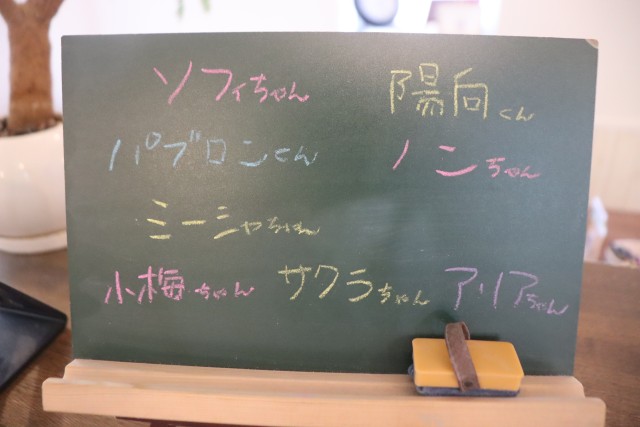 ソフィちゃん 陽向くん
パブロンくん ノンちゃん
ミーシャちゃん
小梅ちゃん サクラちゃん アリアちゃん